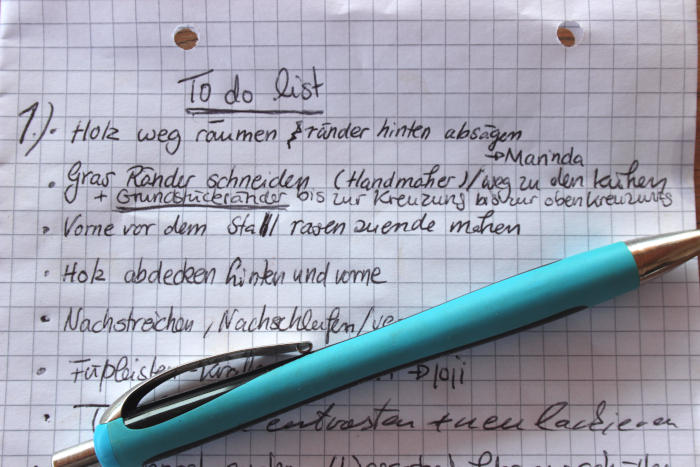 To do list
1.). Holz weg räumen & ränder hinten absägen
→ Marinda
• Gras Ränder schneiden (Handmäher)/weg zu den Kühen
+ Grundstückränder bis zur Kreuzung bis zur oben Kreuzung
• Vorne vor dem Stall rasen zuende mähen
• Holz abdecken hinten und vorne
• Nachstreichen, Nachschleifen/ve
• Fußleisten → Joji
• entrosten + neu lackieren